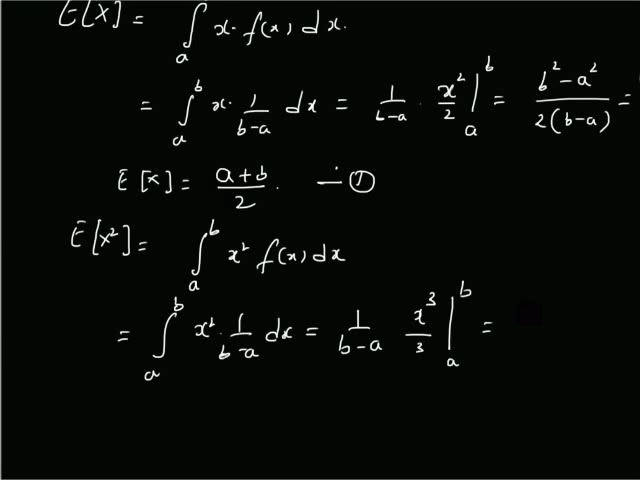 E[X] = ∫ₐ x· f(x) dx.
= ∫ₐᵇ x· 1/(b-a) dx = 1/(b-a) · x²/2 |ₐᵇ = (b²-a²)/(2(b-a)) =
E[X] = (a+b)/2. — ①
E[X²] = ∫ₐᵇ x² f(x) dx
= ∫ₐᵇ x²· 1/(b-a) dx = 1/(b-a) x³/3 |ₐᵇ =